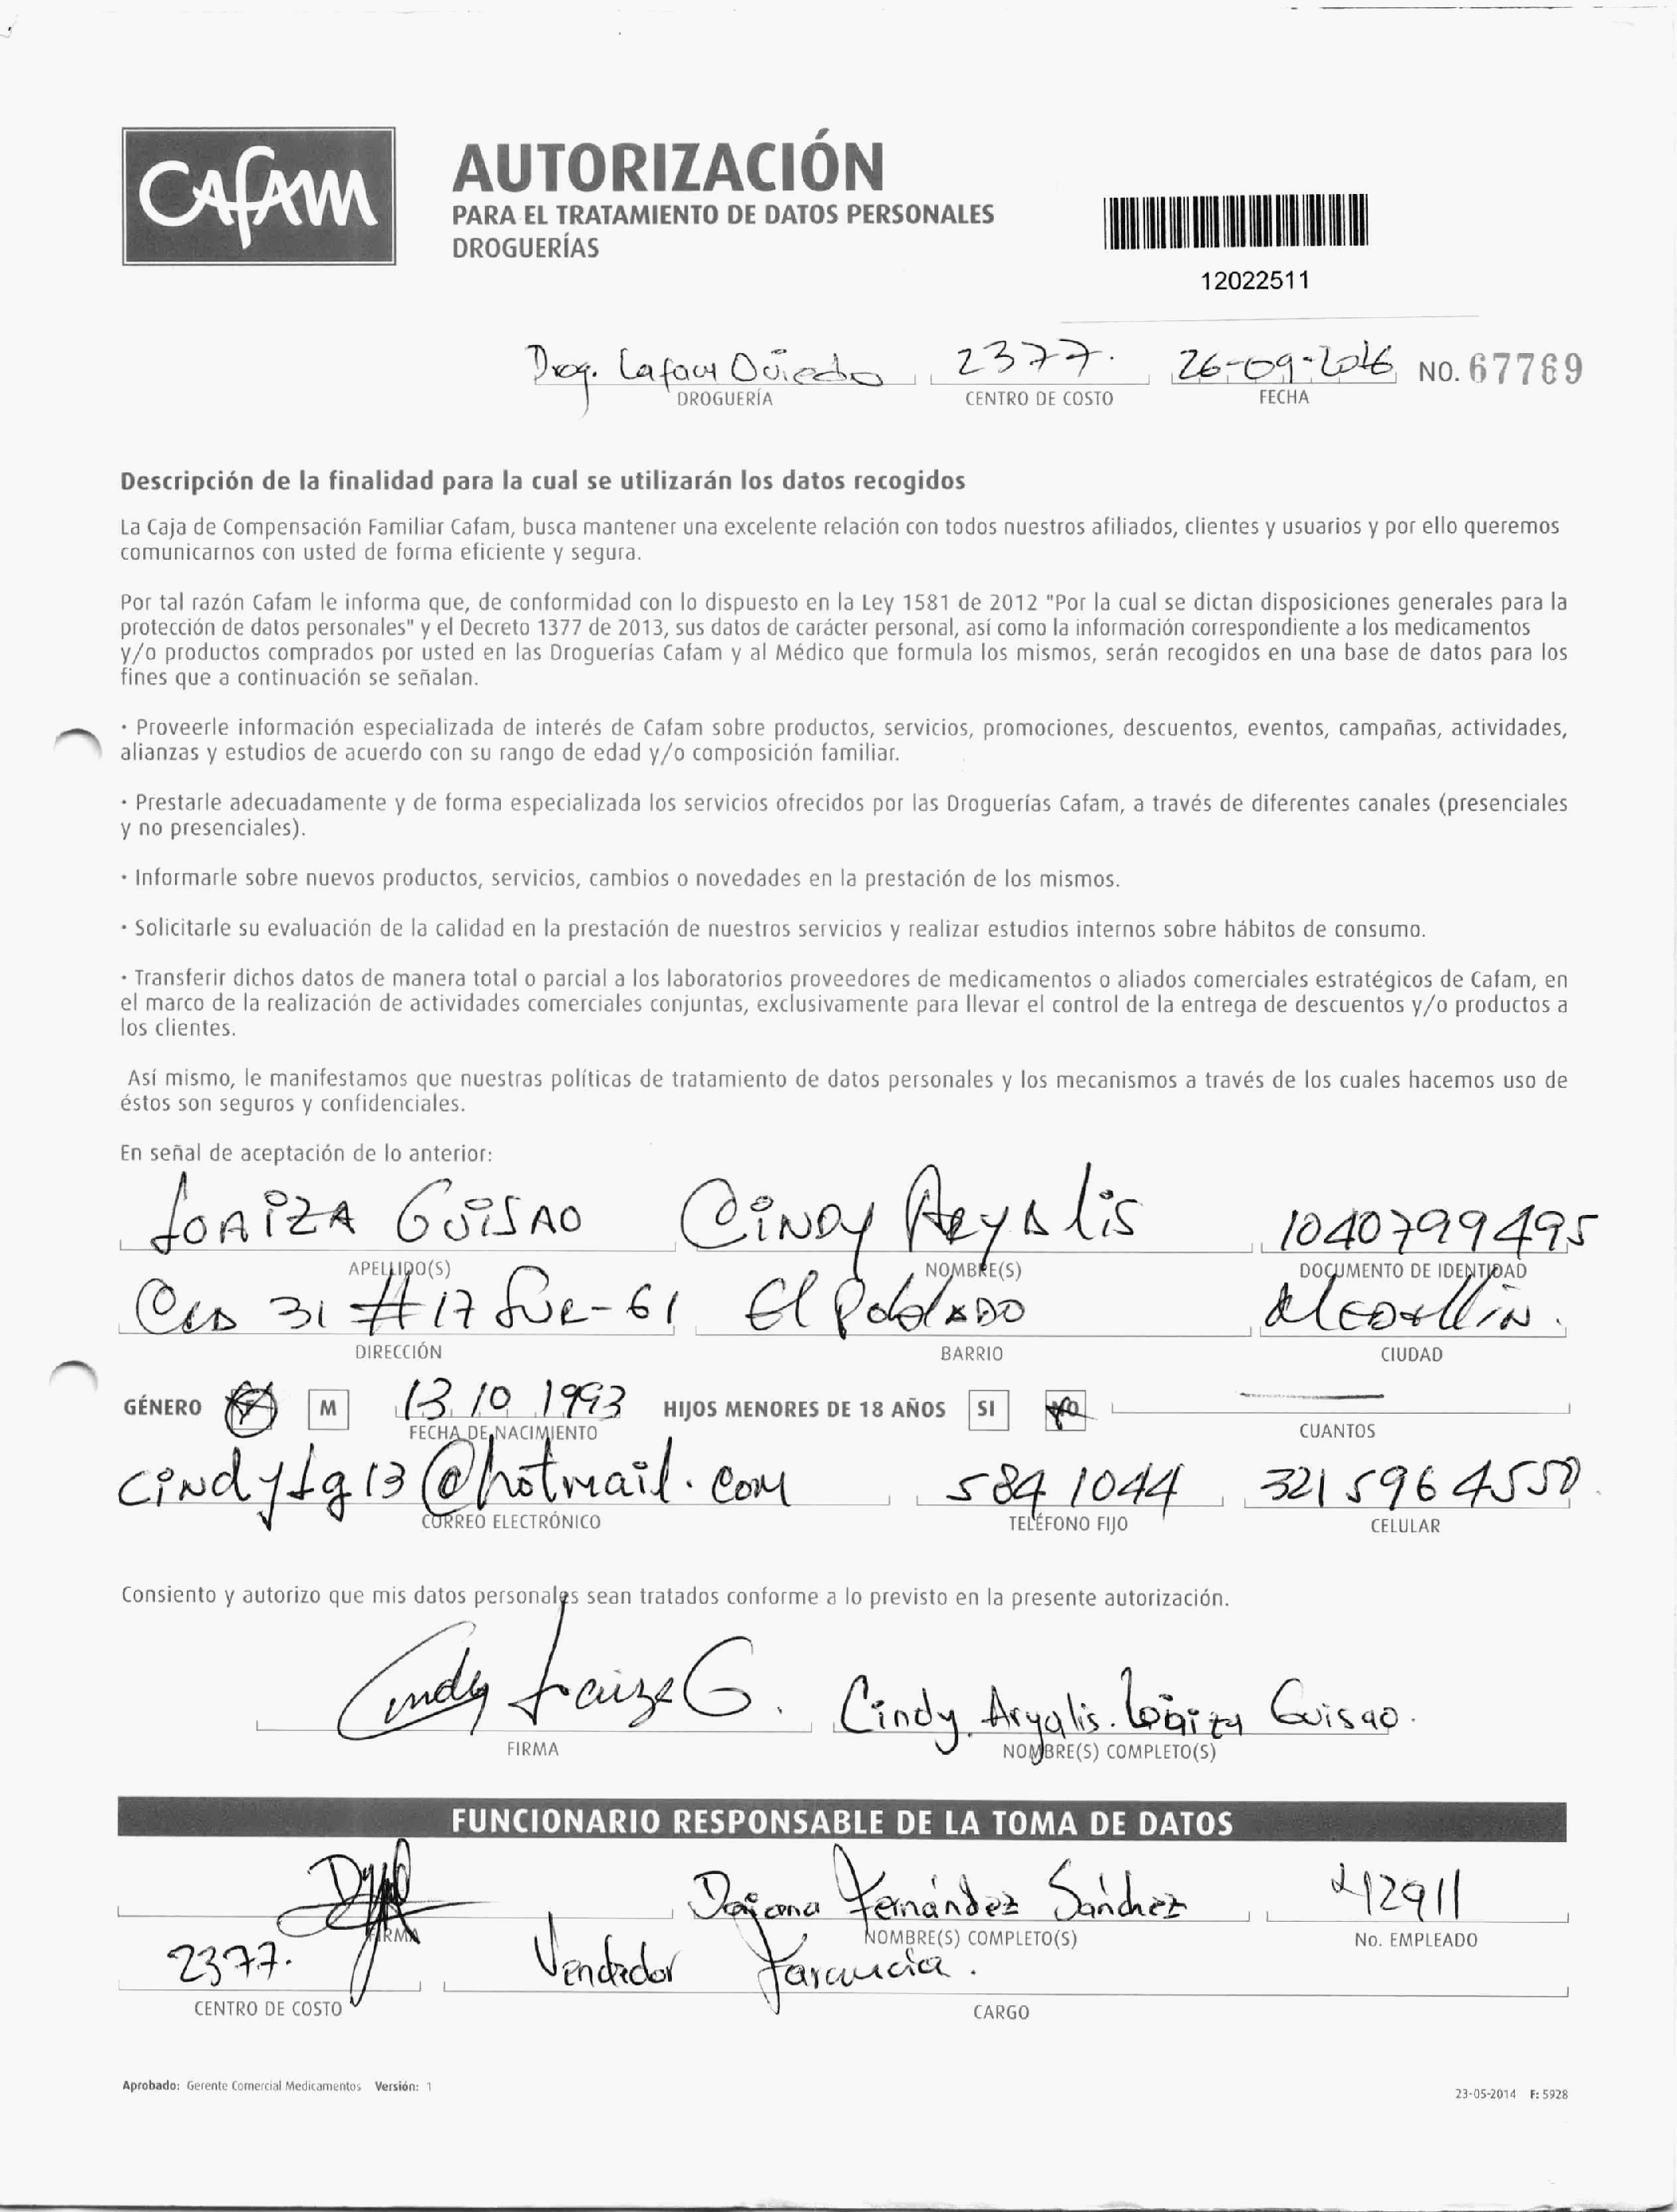 CAFAM
AUTORIZACIÓN
PARA EL TRATAMIENTO DE DATOS PERSONALES
DROGUERÍAS
12022511
Drog. Cafam Oviedo 2377. 26-09-2016 NO. 67769
DROGUERÍA CENTRO DE COSTO FECHA
Descripción de la finalidad para la cual se utilizarán los datos recogidos
La Caja de Compensación Familiar Cafam, busca mantener una excelente relación con todos nuestros afiliados, clientes y usuarios y por ello queremos
comunicarnos con usted de forma eficiente y segura.
Por tal razón Cafam le informa que, de conformidad con lo dispuesto en la Ley 1581 de 2012 "Por la cual se dictan disposiciones generales para la
protección de datos personales" y el Decreto 1377 de 2013, sus datos de carácter personal, así como la información correspondiente a los medicamentos
y/o productos comprados por usted en las Droguerías Cafam y al Médico que formula los mismos, serán recogidos en una base de datos para los
fines que a continuación se señalan.
· Proveerle información especializada de interés de Cafam sobre productos, servicios, promociones, descuentos, eventos, campañas, actividades,
alianzas y estudios de acuerdo con su rango de edad y/o composición familiar.
· Prestarle adecuadamente y de forma especializada los servicios ofrecidos por las Droguerías Cafam, a través de diferentes canales (presenciales
y no presenciales).
· Informarle sobre nuevos productos, servicios, cambios o novedades en la prestación de los mismos.
· Solicitarle su evaluación de la calidad en la prestación de nuestros servicios y realizar estudios internos sobre hábitos de consumo.
· Transferir dichos datos de manera total o parcial a los laboratorios proveedores de medicamentos o aliados comerciales estratégicos de Cafam, en
el marco de la realización de actividades comerciales conjuntas, exclusivamente para llevar el control de la entrega de descuentos y/o productos a
los clientes.
Así mismo, le manifestamos que nuestras políticas de tratamiento de datos personales y los mecanismos a través de los cuales hacemos uso de
éstos son seguros y confidenciales.
En señal de aceptación de lo anterior:
LOAIZA GUISAO CINDY ARYALIS 1040799495
APELLIDO(S) NOMBRE(S) DOCUMENTO DE IDENTIDAD
31 #17 SUR-61 El POBLADO MEDELLIN.
DIRECCIÓN BARRIO CIUDAD
GÉNERO F M 13 10 1993 HIJOS MENORES DE 18 AÑOS SI NO
FECHA DE NACIMIENTO CUANTOS
cindylg13@hotmail.com 584 1044 321 596 4550
CORREO ELECTRÓNICO TELÉFONO FIJO CELULAR
Consiento y autorizo que mis datos personales sean tratados conforme a lo previsto en la presente autorización.
Cindy Loaiza G. Cindy Aryalis Loaiza Guisao.
FIRMA NOMBRE(S) COMPLETO(S)
FUNCIONARIO RESPONSABLE DE LA TOMA DE DATOS
Daiana Fernández Sánchez 212911
FIRMA NOMBRE(S) COMPLETO(S) No. EMPLEADO
2377. Vendedor Farmacia.
CENTRO DE COSTO CARGO
Aprobado: Gerente Comercial Medicamentos Versión: 1
23-05-2014 F: 5928